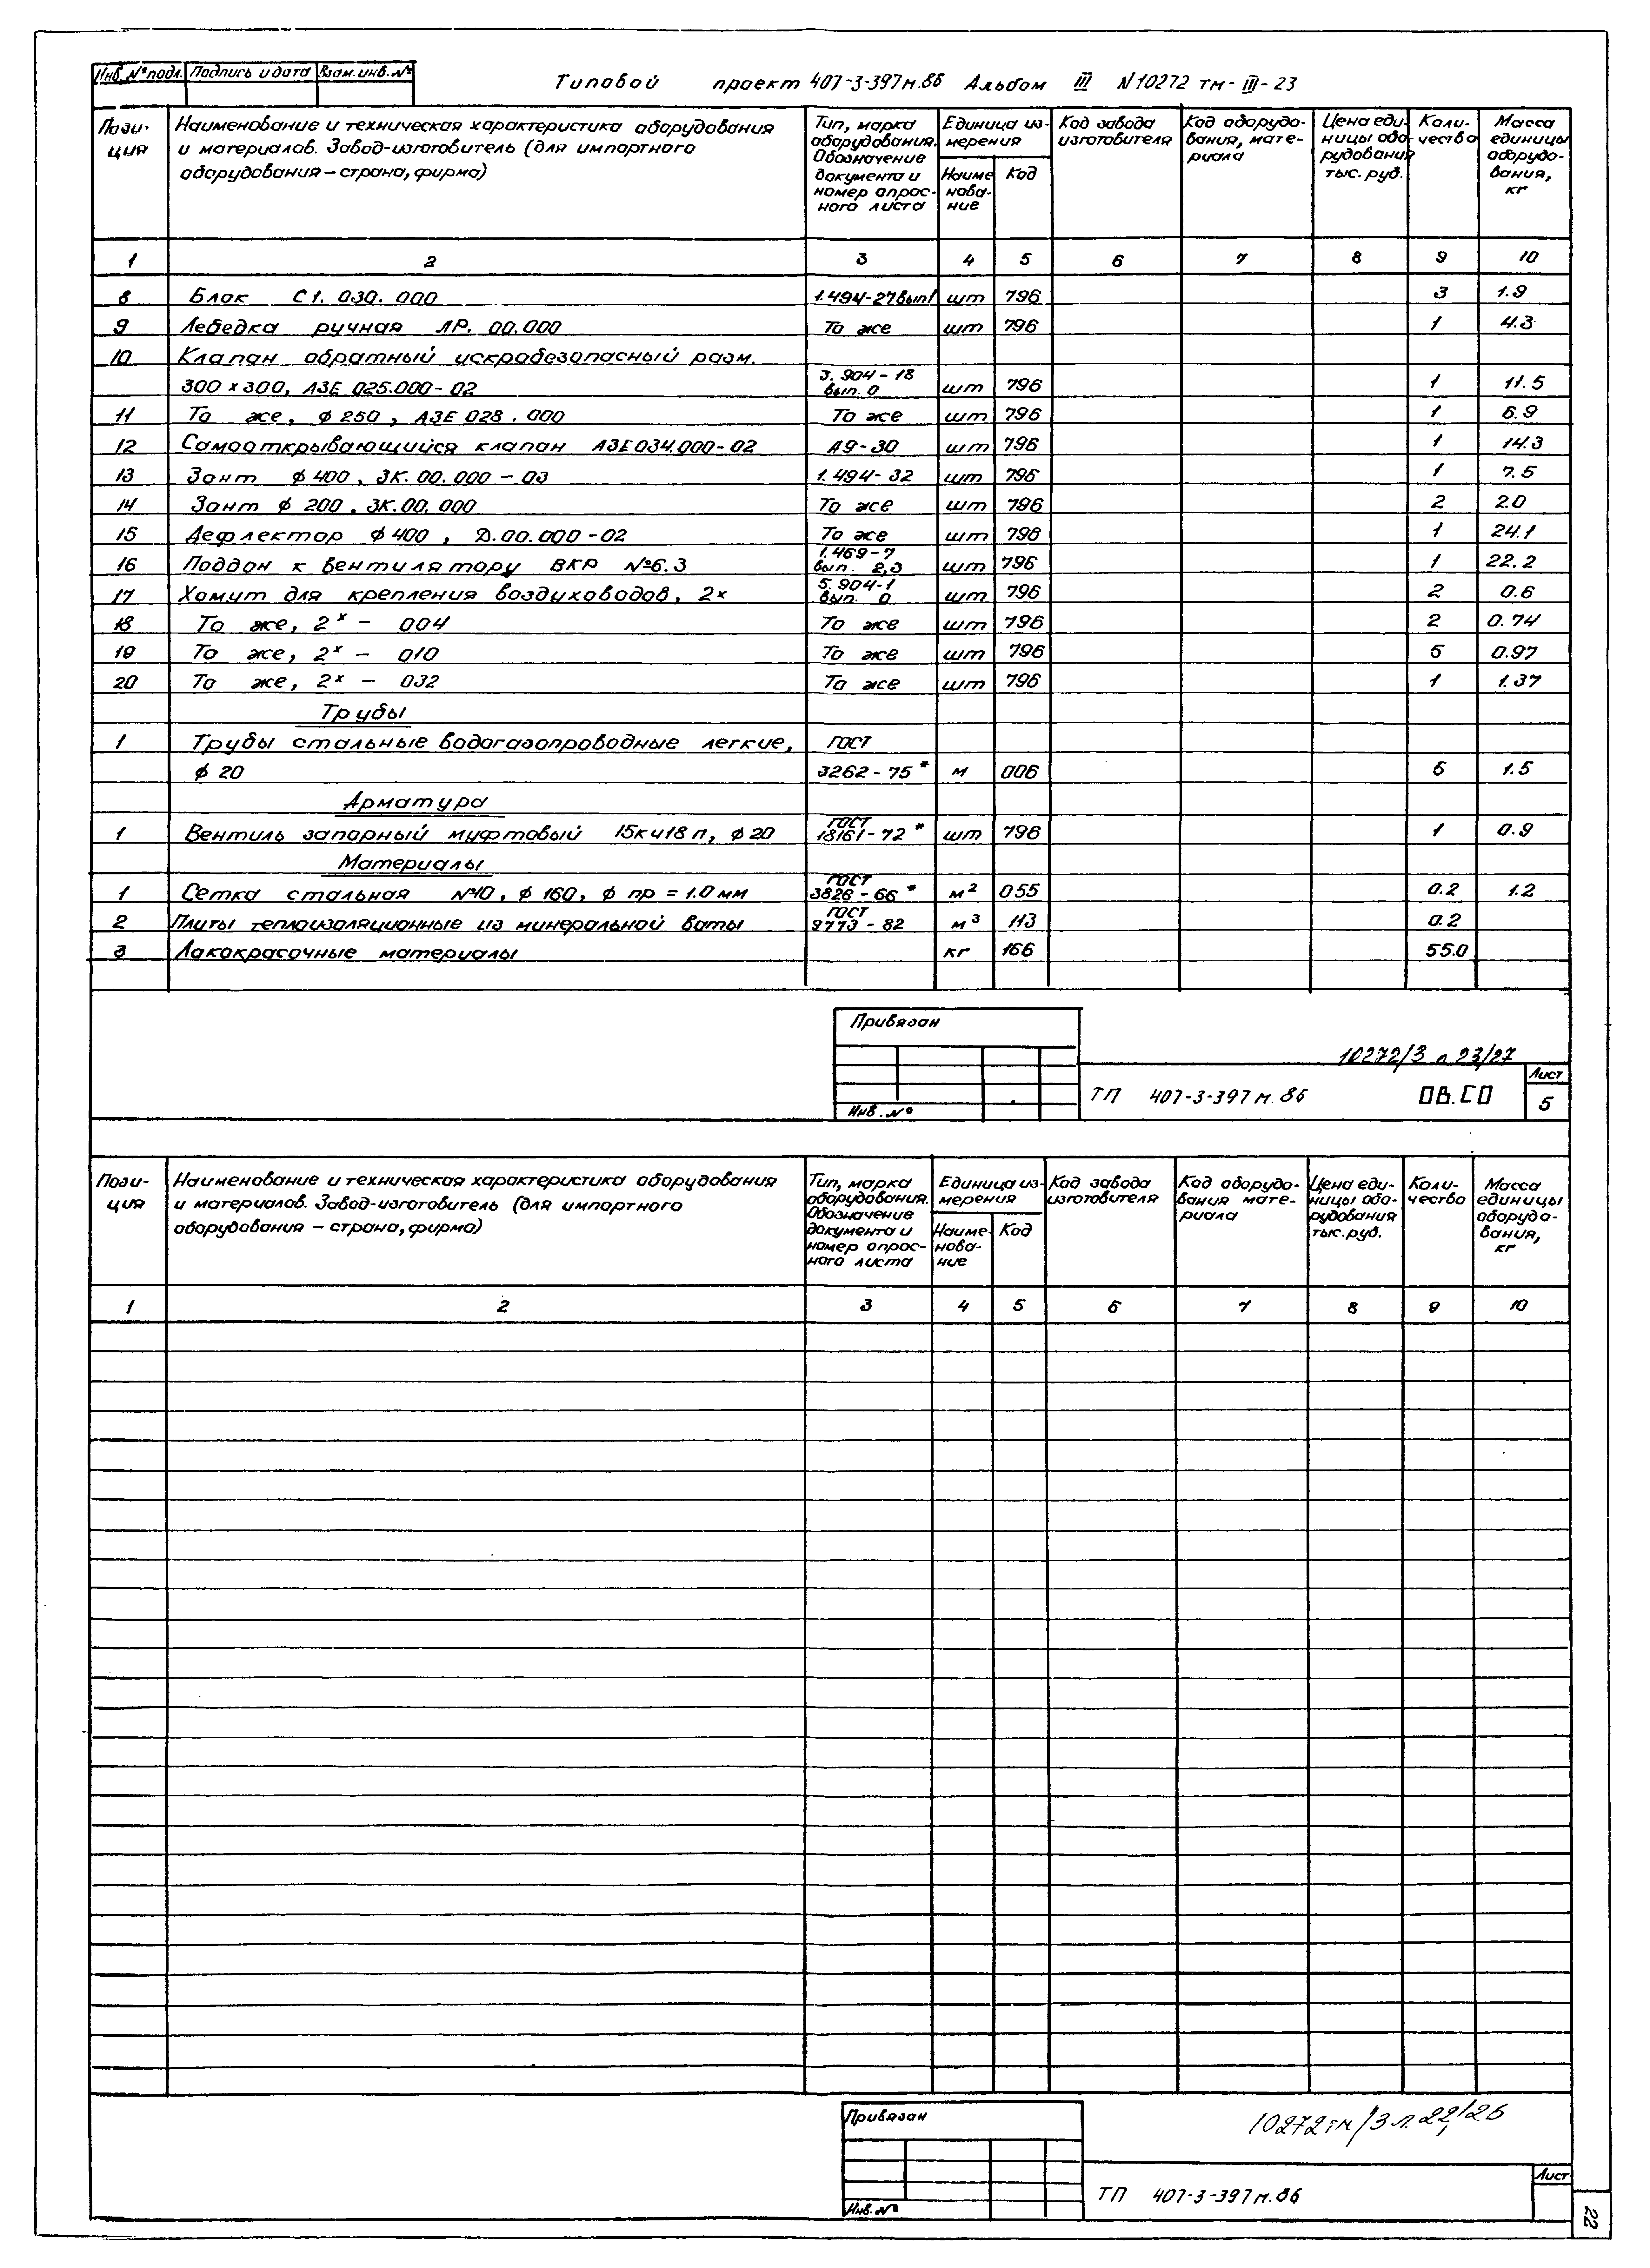 Инв. № подл. Подпись и дата Взам. инв. №
Типовой проект 407-3-397м.86 Альбом III N10272 тм-III-23
Пози- Наименование и техническая характеристика оборудования Тип, марка Единица из- Код завода Код оборудо- Цена еди- Коли- Масса
ция и материалов. Завод-изготовитель (для импортного оборудования. мерения изготовителя вания, мате- ницы обо- чество единицы
оборудования – страна, фирма) Обозначение риала рудования оборудо-
документа и Наиме Код тыс. руб. вания,
номер опрос- нова- кг
ного листа ние
1 2 3 4 5 6 7 8 9 10
8 Блок С1. 030. 000 1.494-27вып1 шт 796 3 1.9
9 Лебедка ручная ЛР. 00.000 То же шт 796 1 4.3
10 Клапан обратный искробезопасный разм.
300 х 300, АЗЕ 025.000-02 3.904-18 вып. 0 шт 796 1 11.5
11 То же, ф 250, АЗЕ 028.000 То же шт 796 1 6.9
12 Самооткрывающийся клапан АЗЕ034.000-02 А9-30 шт 796 1 14.3
13 Зонт ф 400, ЗК. 00. 000 - 03 1.494-32 шт 796 1 7.5
14 Зонт ф 200, ЗК.00. 000 То же шт 796 2 2.0
15 Дефлектор ф 400, Д.00.000-02 То же шт 796 1 24.1
16 Поддон к вентилятору ВКР №6.3 1.469-7 вып. 2,3 шт 796 1 22.2
17 Хомут для крепления воздуховодов, 2х 5.904-1 вып. 0 шт 796 2 0.6
18 То же, 2х - 004 То же шт 796 2 0.74
19 То же, 2х - 010 То же шт 796 5 0.97
20 То же, 2х - 032 То же шт 796 1 1.37
Трубы
1 Трубы стальные водогазопроводные легкие, ГОСТ
ф 20 3262-75* м 006 6 1.5
Арматура
1 Вентиль запорный муфтовый 15кч18п, ф 20 ГОСТ 18161-72* шт 796 1 0.9
Материалы
1 Сетка стальная №10, ф 160, ф пр = 1.0 мм ГОСТ 3826-66* м² 055 0.2 1.2
2 Плиты теплоизоляционные из минеральной ваты ГОСТ 9773-82 м³ 113 0.2
3 Лакокрасочные материалы кг 166 55.0
Привязан
10272/3 л 23/27
ТП 407-3-397м.86 ОВ.СО Лист
5
Инв. №
Пози- Наименование и техническая характеристика оборудования Тип, марка Единица из- Код завода Код оборудо- Цена еди- Коли- Масса
ция и материалов. Завод-изготовитель (для импортного оборудования. мерения изготовителя вания мате- ницы обо- чество единицы
оборудования – страна, фирма) Обозначение риала рудования оборудо-
документа и Наиме- Код тыс. руб. вания,
номер опрос- нова- кг
ного листа ние
1 2 3 4 5 6 7 8 9 10
Привязан
10272тм/3 л.22/26
ТП 407-3-397м.86 Лист
Инв. №
22